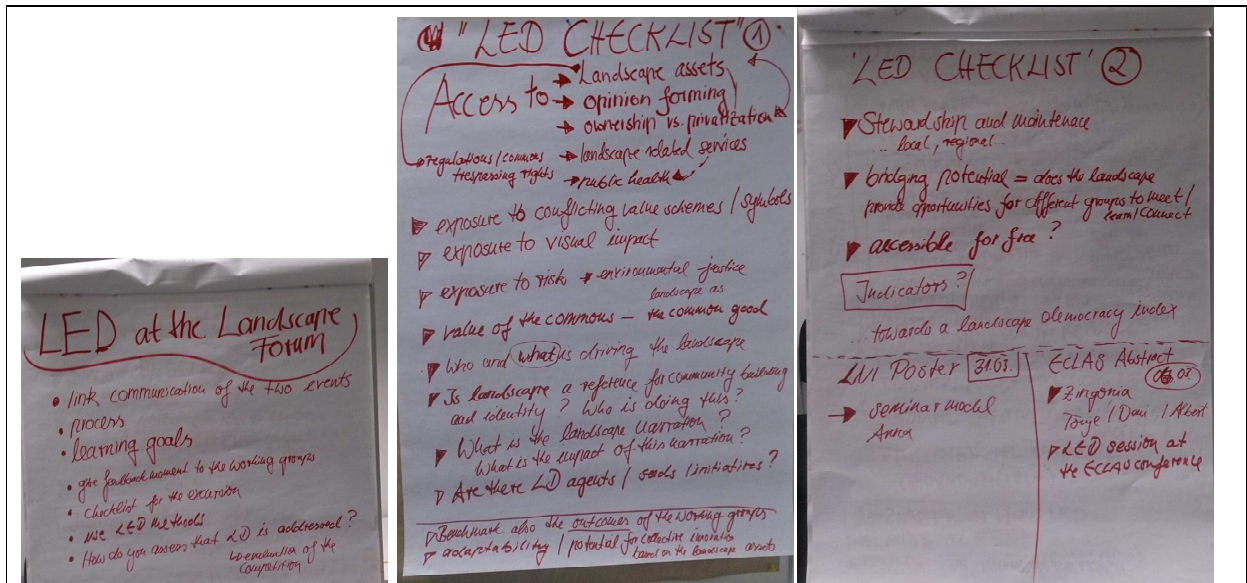 LED at the Landscape
Forum
• link communication of the two events
• process
• learning goals
• give feedback moment to the working groups
• checklist for the excursion
• use LED methods
• How do you assess that LD is addressed?
↳ evaluation of the
competition
"LED CHECKLIST" ①
Access to → Landscape assets
→ opinion forming
→ ownership vs. privatization
→ landscape related services
→ public health
regulations/commons
trespassing rights
exposure to conflicting value schemes / symbols
exposure to visual impact
exposure to risk → environmental justice
landscape as
value of the commons – the common good
Who and what is driving the landscape
Is landscape a reference for community building
and identity? Who is doing this?
What is the landscape narration?
What is the impact of this narration?
Are there LD agents / seeds / initiatives?
Benchmark also the outcomes of the working groups
adaptability / potential for collective innovation
based on the landscape assets
'LED CHECKLIST' ②
Stewardship and maintenace
... local, regional...
bridging potential = does the landscape
provide opportunities for different groups to meet /
learn/connect
accessible for free?
Indicators?
...towards a landscape democracy index
LNI Poster 31.03.
→ seminar model
Anna
ECLAS Abstract
Zingonia
/ Dani / Albert
LED session at
the ECLAS conference